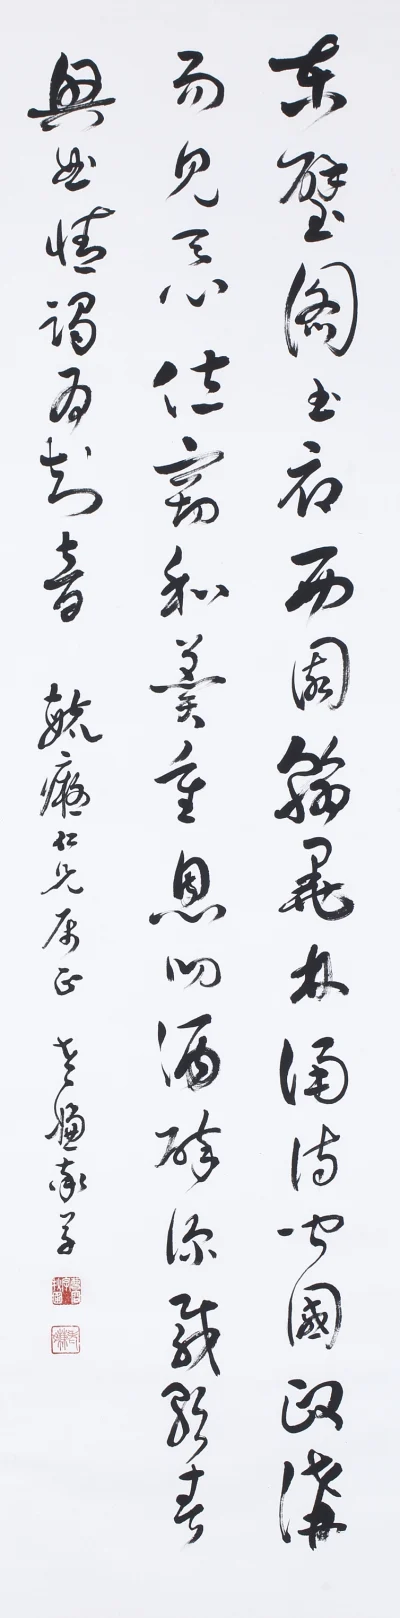 東壁圖書府西園翰墨林誦詩聞國政講
易見天心位竊和羹重恩叨酒醉深載歌春
興曲情竭為知音 毓癡仁兄屬正